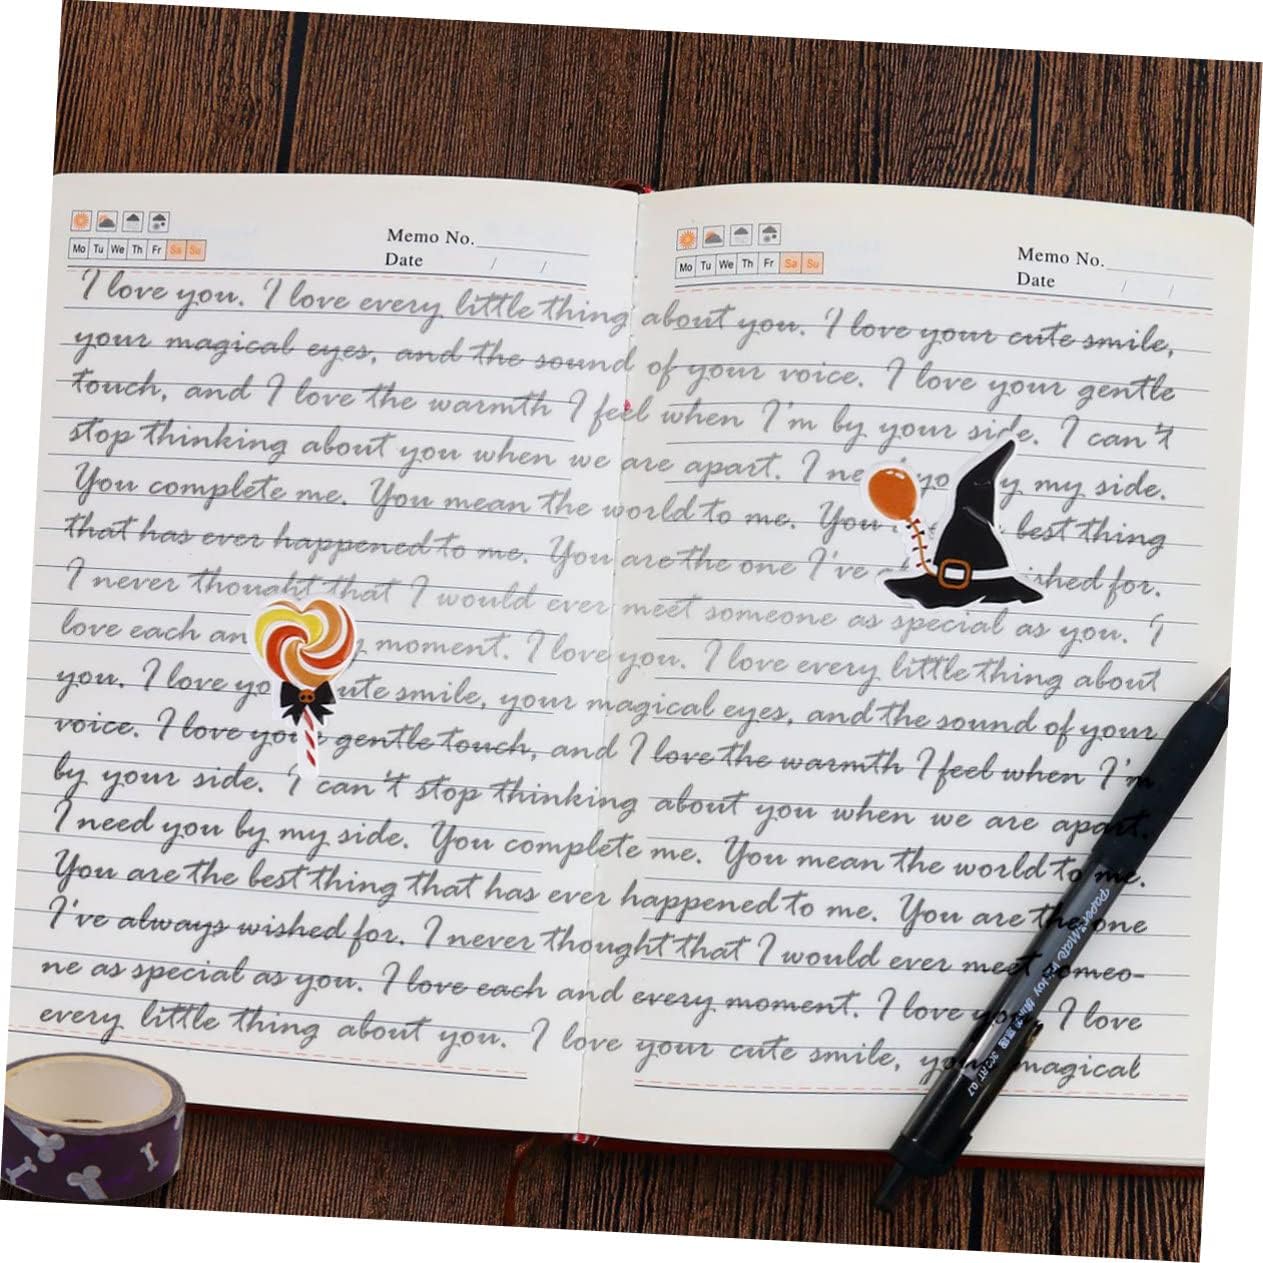 Memo No.
Mo Tu We Th Fr Sa Su
Date / /
Memo No.
Mo Tu We Th Fr Sa Su
Date / /
I love you. I love every little thing about you. I love your cute smile,
your magical eyes, and the sound of your voice. I love your gentle
touch, and I love the warmth I feel when I'm by your side. I can't
stop thinking about you when we are apart. I ne yo y my side.
You complete me. You mean the world to me. You best thing
that has ever happened to me. You are the one I've shed for.
I never thought that I would ever meet someone as special as you. I
love each an moment. I love you. I love every little thing about
you. I love yo ute smile, your magical eyes, and the sound of your
voice. I love your gentle touch, and I love the warmth I feel when I'm
by your side. I can't stop thinking about you when we are apart.
I need you by my side. You complete me. You mean the world to me.
You are the best thing that has ever happened to me. You are the one
I've always wished for. I never thought that I would ever meet someo-
ne as special as you. I love each and every moment. I love you. I love
every little thing about you. I love your cute smile, your magical
Paper:Mate
0.7